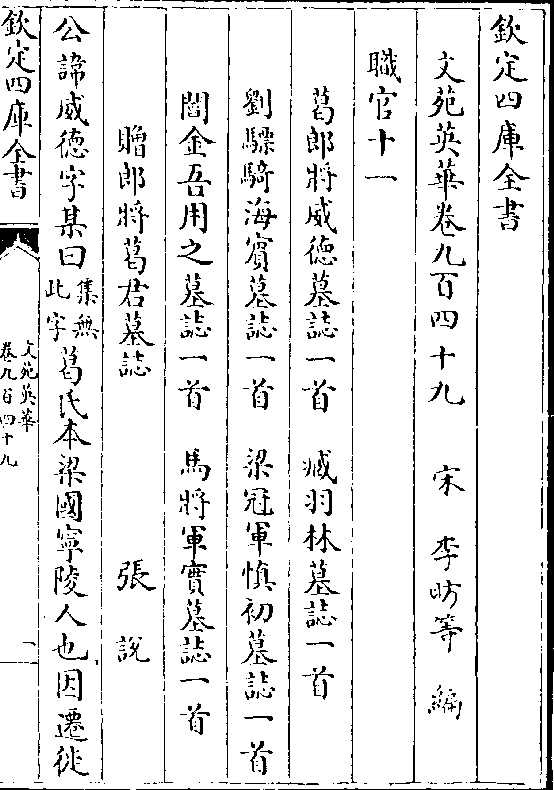 欽定四庫全書
文苑英華卷九百四十九　宋　李昉等　編
職官十一
葛郎將威德墓誌一首　臧羽林墓誌一首
劉驃騎海賓墓誌一首　梁冠軍慎初墓誌一首
閻金吾用之墓誌一首　馬將軍實墓誌一首
贈郎將葛君墓誌　張說
公諱威德字某曰集無此字葛氏本梁國寧陵人也因遷徙
欽定四庫全書
文苑英華
卷九百四十九
一